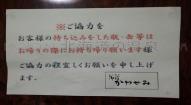 ※ご協力を
お客様の持ち込みをした瓶・缶等は
お帰りの際にお持ち帰り願います様
ご協力の程宜しくお願いを申し上げ
ます。
かわせみ